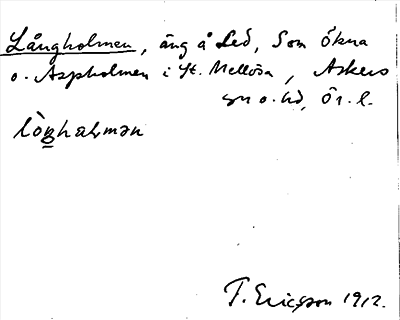 Långholmen, äng å Led, Som Ökna
o. Aspholmen i St. Mellösa, Askers
sn o. hd, Ör. l.
lòŋhaƚmən
T. Ericsson 1912.